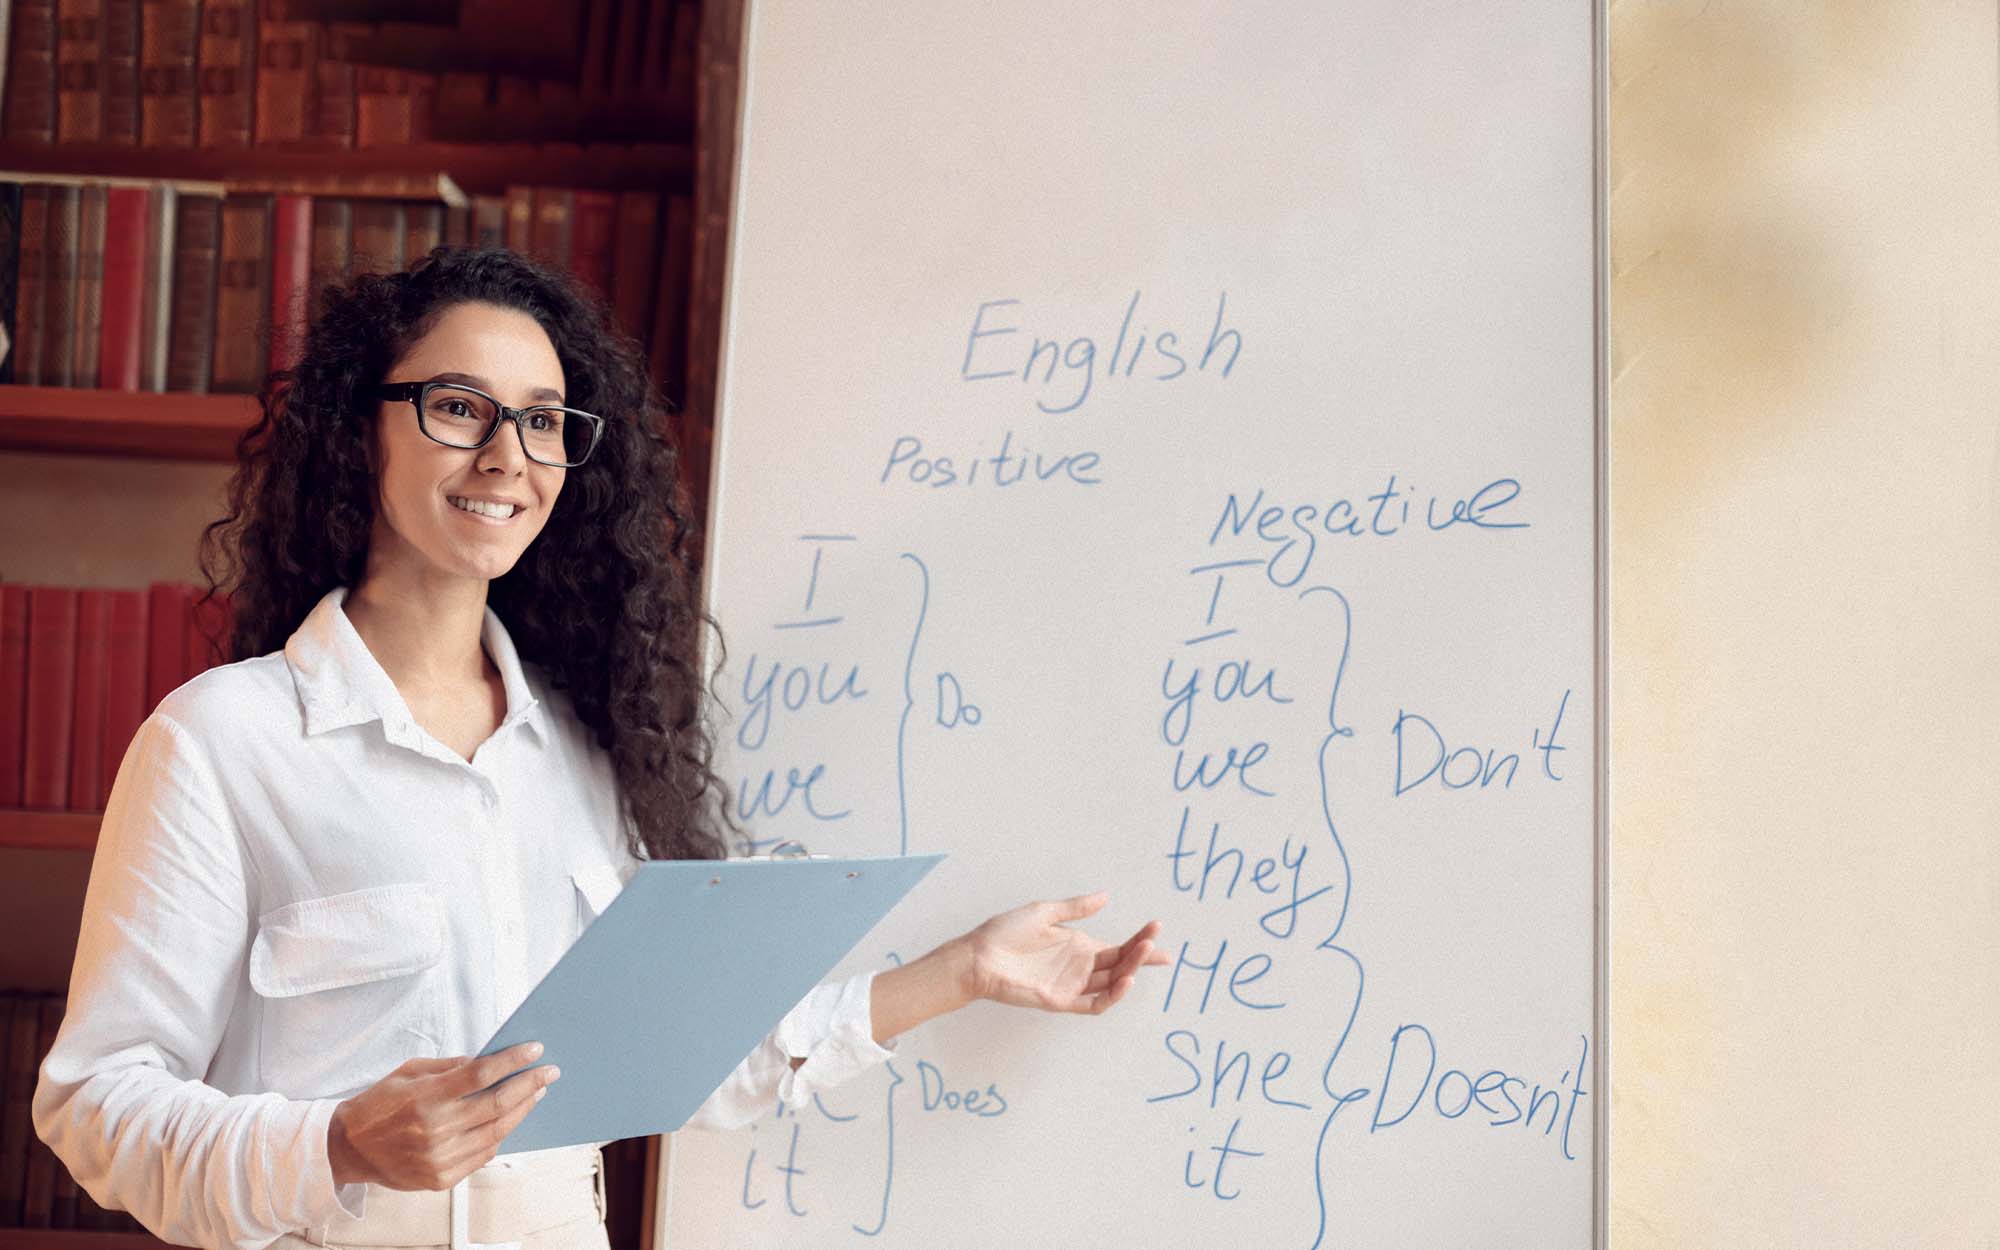 English
Positive
I
you
we
Do
Does
it
Negative
I
you
we
they
Don't
He
She
it
Doesn't